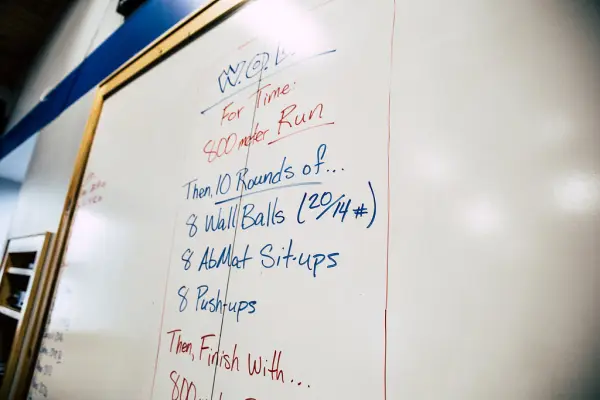 W.O.D.
For Time:
800 meter Run
Then, 10 Rounds of...
8 Wall Balls (20/14#)
8 AbMat Sit-ups
8 Push-ups
Then, Finish With...
800